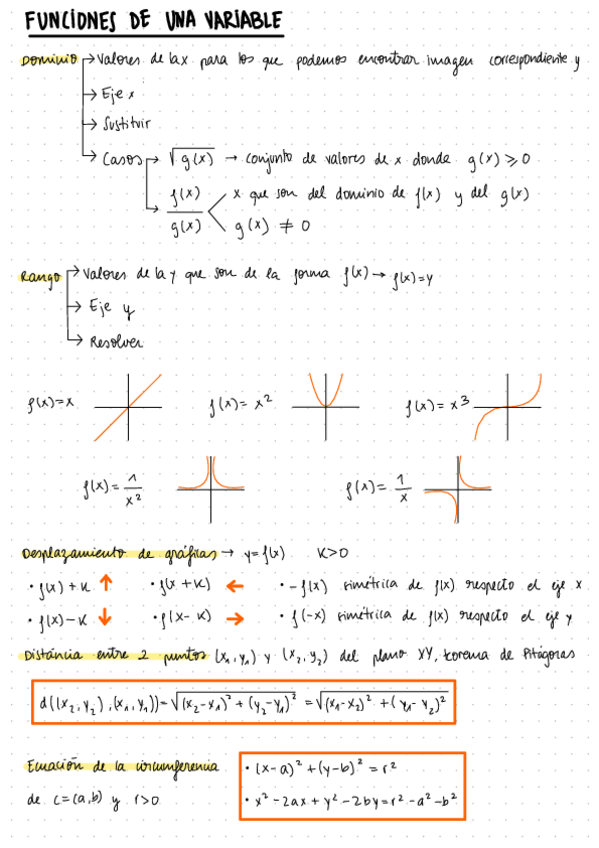 FUNCIONES DE UNA VARIABLE
Dominio → Valores de la x para los que podemos encontrar imagen correspondiente y
→ Eje x
→ Sustituir
→ Casos → √g(x) → conjunto de valores de x donde g(x) ≥ 0
f(x)/g(x) < x que son del dominio de f(x) y del g(x)
g(x) ≠ 0
Rango → Valores de la y que son de la forma f(x) → f(x)=y
→ Eje y
→ Resolver
f(x)=x f(x)= x² f(x)= x³
f(x)= 1/x² f(x)= 1/x
Desplazamiento de gráficas → y=f(x) K>0
• f(x)+K ↑ • f(x+K) ← • -f(x) simétrica de f(x) respecto el eje x
• f(x)-K ↓ • f(x-K) → • f(-x) simétrica de f(x) respecto el eje y
Distáncia entre 2 puntos (x₁,y₁) y (x₂,y₂) del plano XY, teorema de Pitágoras
d((x₂,y₂),(x₁,y₁))=√(x₂-x₁)²+(y₂-y₁)² =√(x₁-x₂)²+(y₁-y₂)²
Ecuación de la circumferencia • (x-a)²+(y-b)²=r²
de c=(a,b) y r>0 • x²-2ax+y²-2by=r²-a²-b²